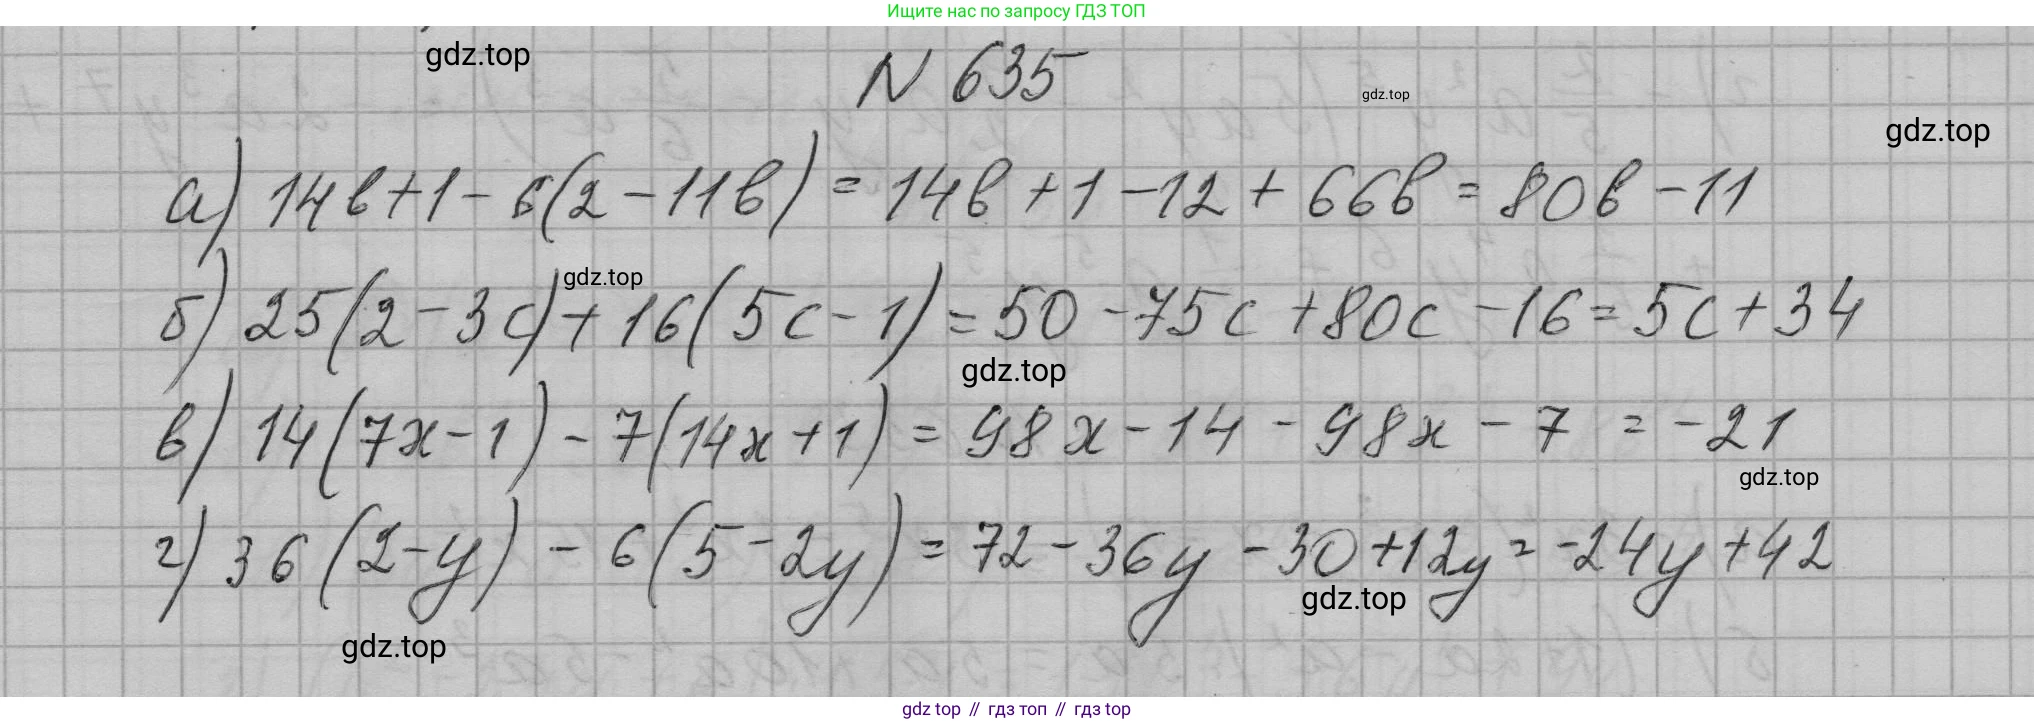 Ищите нас по запросу ГДЗ ТОП
gdz.top
N 635
gdz.top
gdz.top
а) 14b+1-6(2-11b)=14b+1-12+66b=80b-11
gdz.top
б) 25(2-3c)+16(5c-1)=50-75c+80c-16=5c+34
gdz.top
в) 14(7x-1)-7(14x+1)=98x-14-98x-7=-21
gdz.top
г) 36(2-y)-6(5-2y)=72-36y-30+12y=-24y+42
gdz.top
gdz.top
gdz top // гдз топ // гдз top